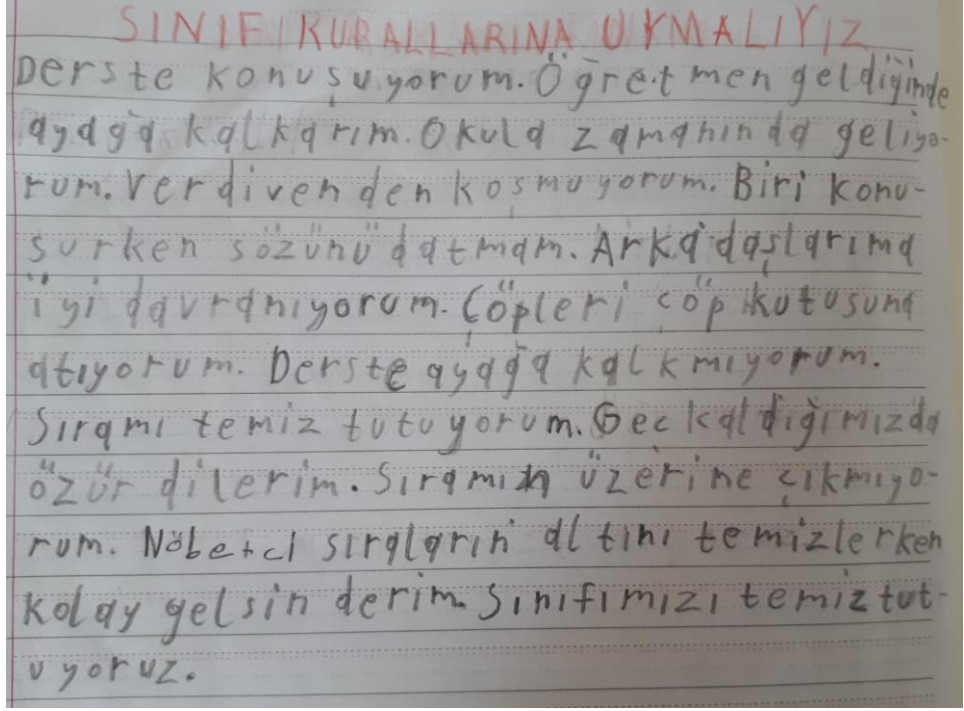 SINIF KURALLARINA UYMALIYIZ
Derste konuşuyorum. Öğretmen geldiğinde
ayağa kalkarım. Okula zamanında geliyo-
rum. Verdivenden koşmuyorum. Biri konu-
şurken sözünü datmam. Arkadaşlarıma
iyi davranıyorum. Çöpleri çöp kutusuna
atıyorum. Derste ayağa kalkmıyorum.
Sıramı temiz tutuyorum. Gec kaldığımızda
özür dilerim. Sıramın üzerine çıkmıyo-
rum. Nöbetci sıraların altını temizlerken
kolay gelsin derim. Sınıfımızı temiz tut-
uyoruz.